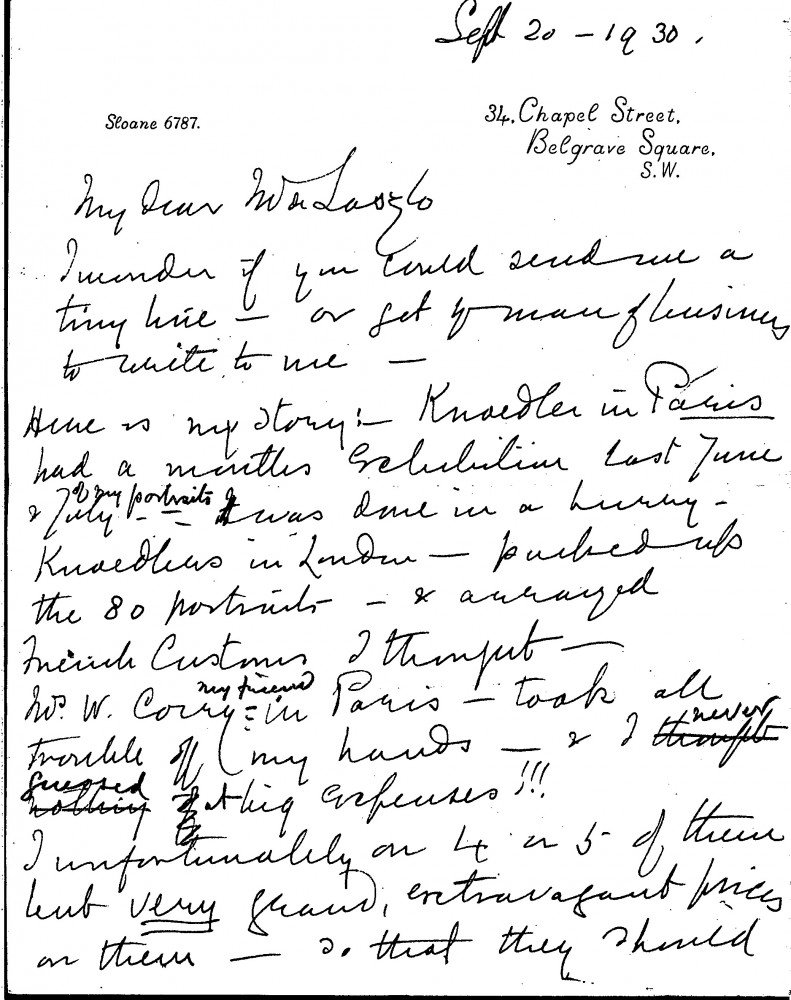 Sept 20 – 1930.
Sloane 6787.
34, Chapel Street,
Belgrave Square,
S.W.
My dear Mr de Laszlo
I wonder if you could send me a
tiny line – or get yr man of business
to write to me –
Here is my story:– Knoedler in Paris
had a months Exhibition last June
& July of my portraits – & it was done in a hurry –
Knoedlers in London – packed up
the 80 portraits – & arranged
French Customs I thought –
Mr. W. Corry = my friend in Paris – took all
trouble off my hands – & I thought never
guessed nothing at big expenses!!!
I unfortunately on 4 or 5 of them
put very grand, extravagant prices
on them – so that they should